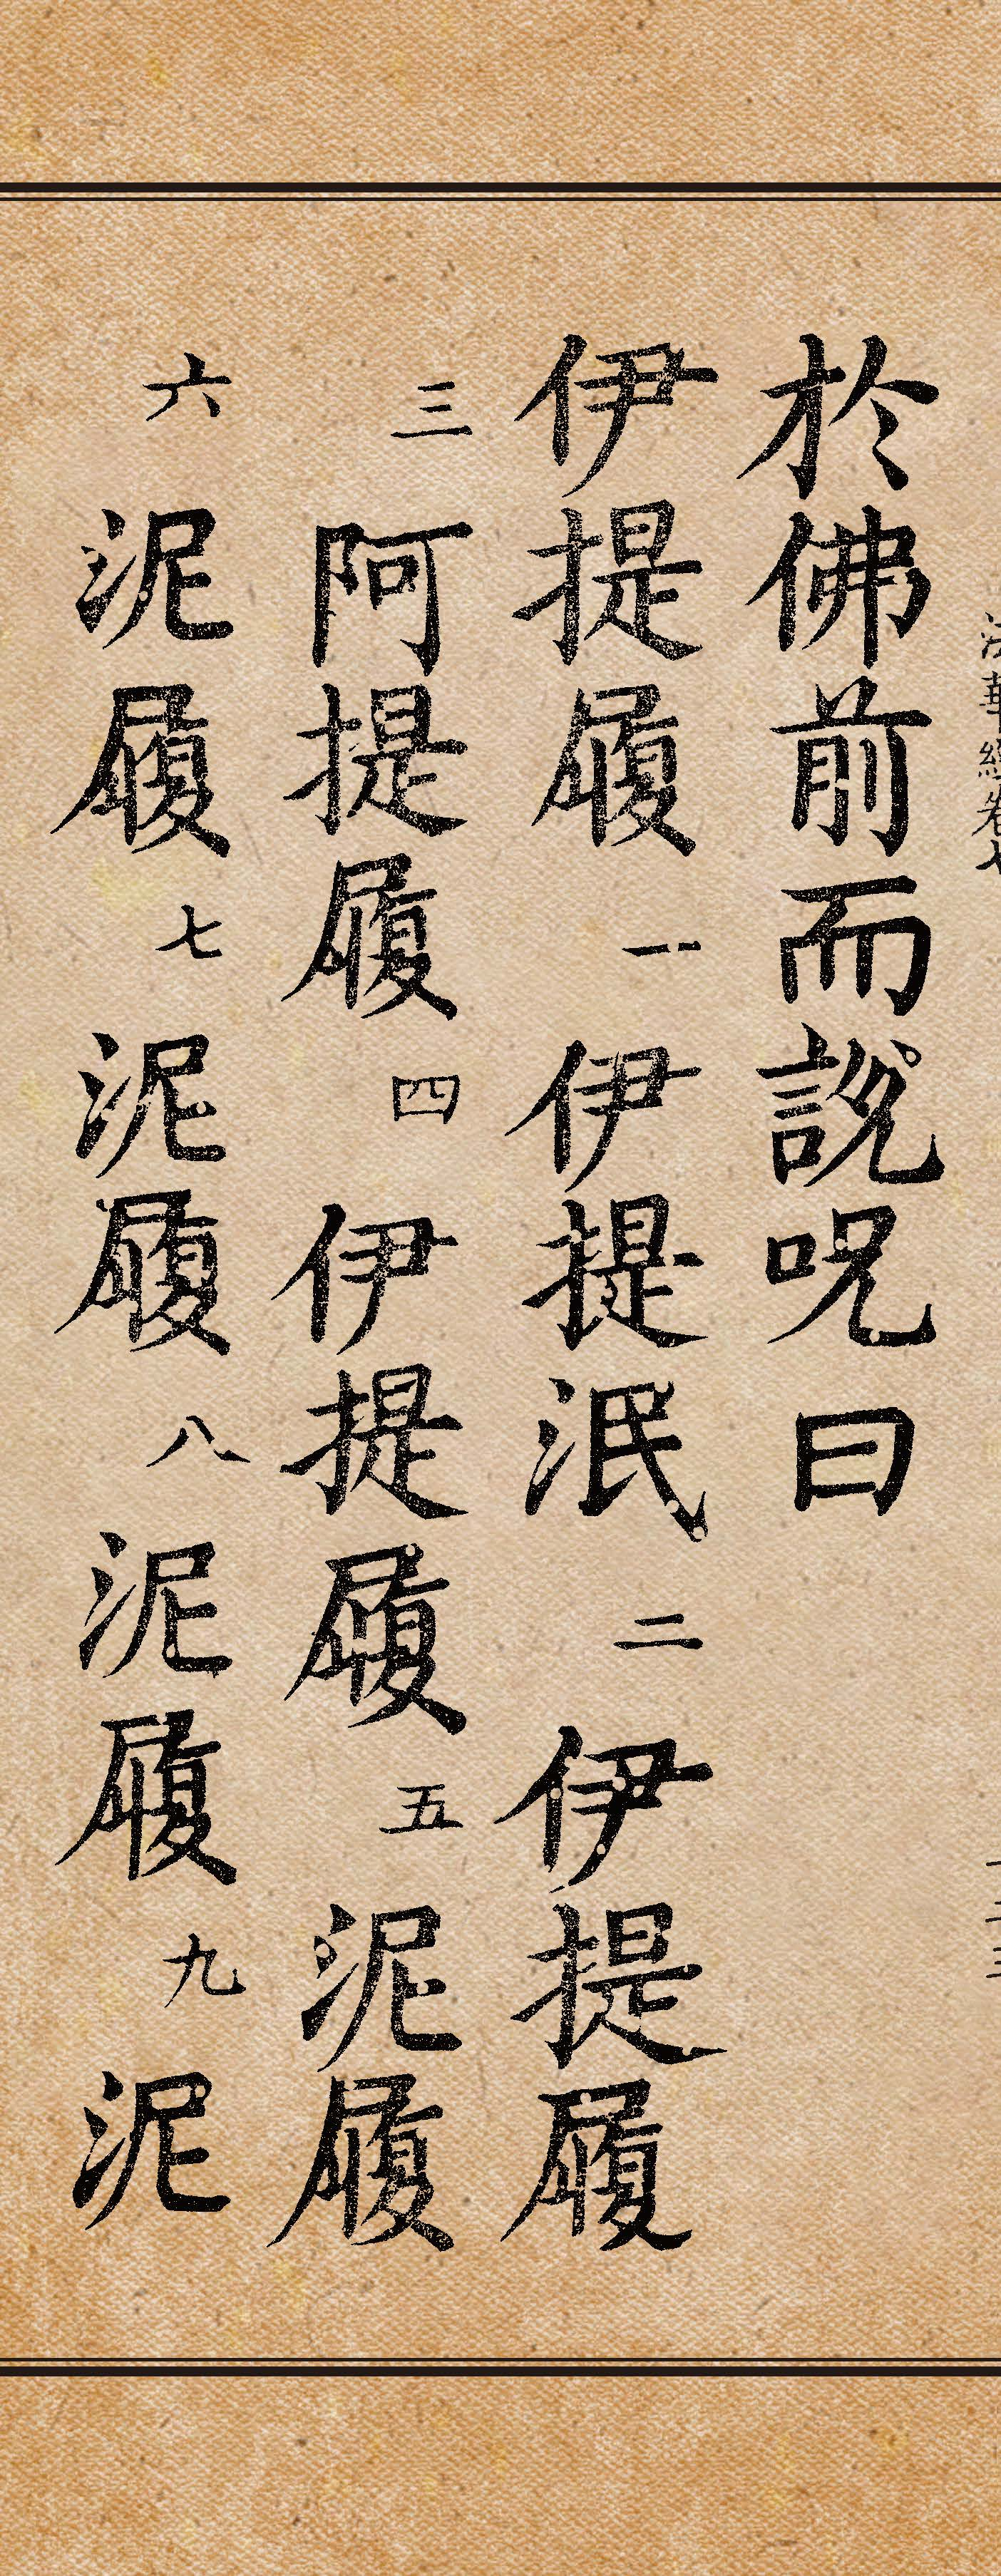 法華經卷七
於佛前而說呪曰
伊提履一伊提泯二伊提履
三阿提履四伊提履五泥履
六泥履七泥履八泥履九泥